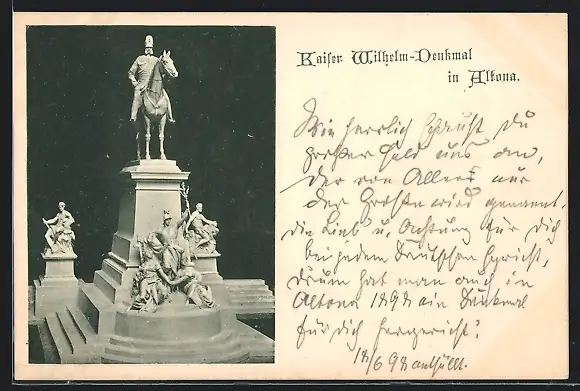 Kaiser Wilhelm-Denkmal
in Altona.
Wie herrlich schaust Du
großer Held uns an,
der von Allen nur
der Große wird genannt.
die Lieb' u. Achtung für Dich
bei jedem Deutschen spricht,
drum hat man auch in
Altona 1898 ein Denkmal
für Dich hergericht!
18/6 98 enthüllt.